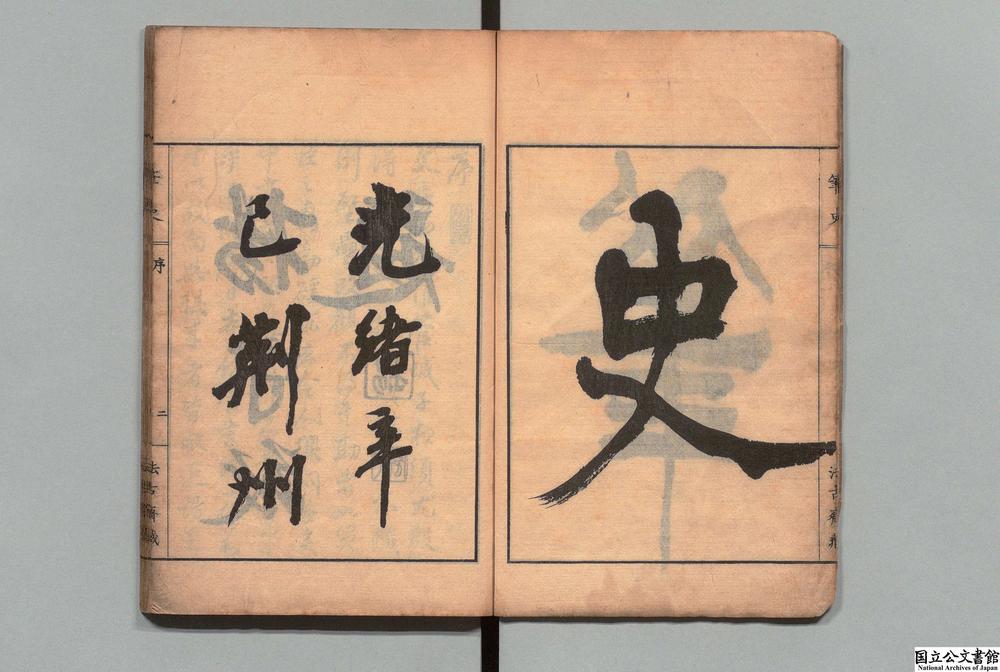 筆史
史
光緒辛
巳荊州
序
二
国立公文書館
National Archives of Japan